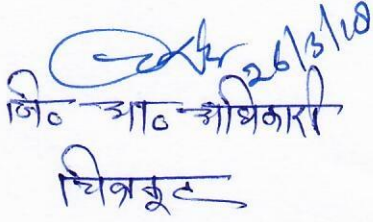 26/3/18
जि० आ० अधिकारी
चित्रकूट